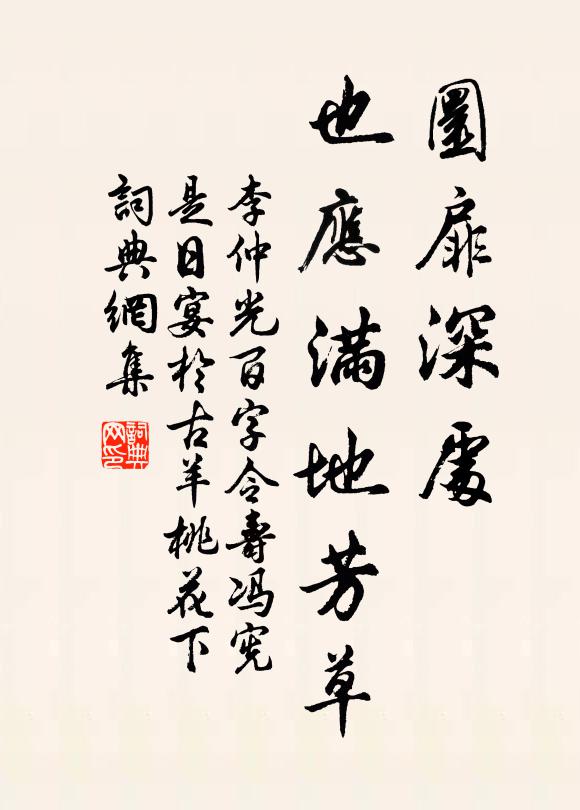 圜扉深處
也應滿地芳草
李仲光百字令壽冯宪
是日宴於古羊桃花下
詞典網集
詞典网印